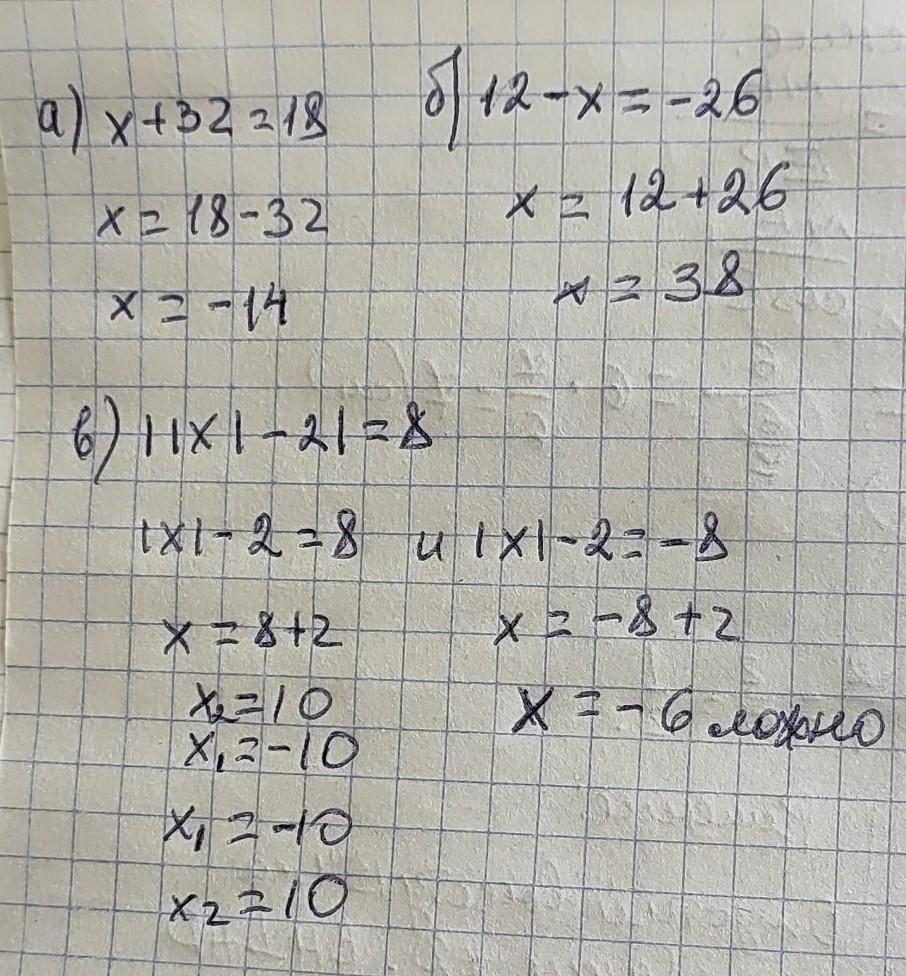 а) x+32=18
x=18-32
x=-14
б) 12-x=-26
x=12+26
x=38
в) ||x|-2|=8
|x|-2=8 и |x|-2=-8
x=8+2
x₂=10
x₁=-10
x₁=-10
x₂=10
x=-8+2
x=-6 ложно